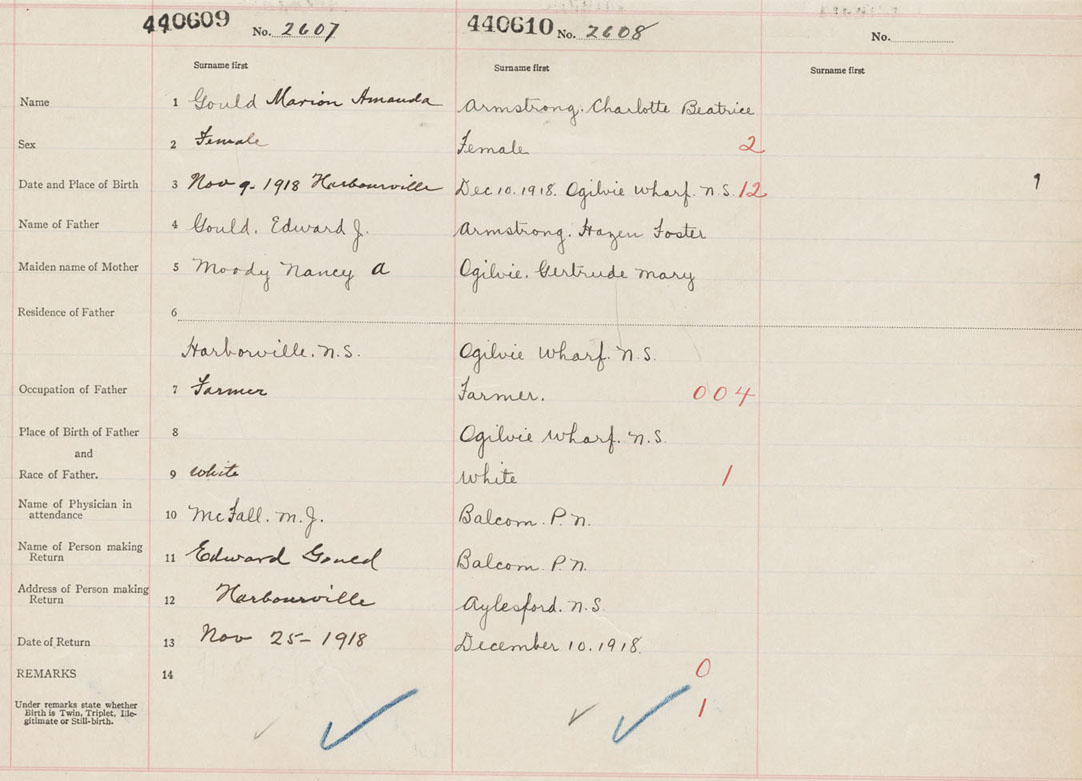 440609 No. 2607 440610 No. 2608 No.
Surname first Surname first Surname first
Name 1 Gould Marion Amanda Armstrong. Charlotte Beatrice
Sex 2 Female Female 2
Date and Place of Birth 3 Nov 9. 1918 Harbourville Dec 10. 1918. Ogilvie Wharf. N.S. 12 9
Name of Father 4 Gould. Edward J. Armstrong. Hazen Foster
Maiden name of Mother 5 Moody Nancy A Ogilvie. Gertrude Mary
Residence of Father 6
Harborville. N.S. Ogilvie Wharf. N.S.
Occupation of Father 7 Farmer Farmer. 004
Place of Birth of Father 8 Ogilvie Wharf. N.S.
and
Race of Father. 9 White White 1
Name of Physician in
attendance 10 McFall. M.J. Balcom. P.N.
Name of Person making
Return 11 Edward Gould Balcom. P.N.
Address of Person making
Return 12 Harbourville Aylesford. N.S.
Date of Return 13 Nov 25- 1918 December 10. 1918.
REMARKS 14 0
Under remarks state whether
Birth is Twin, Triplet, Ille-
gitimate or Still-birth. 1